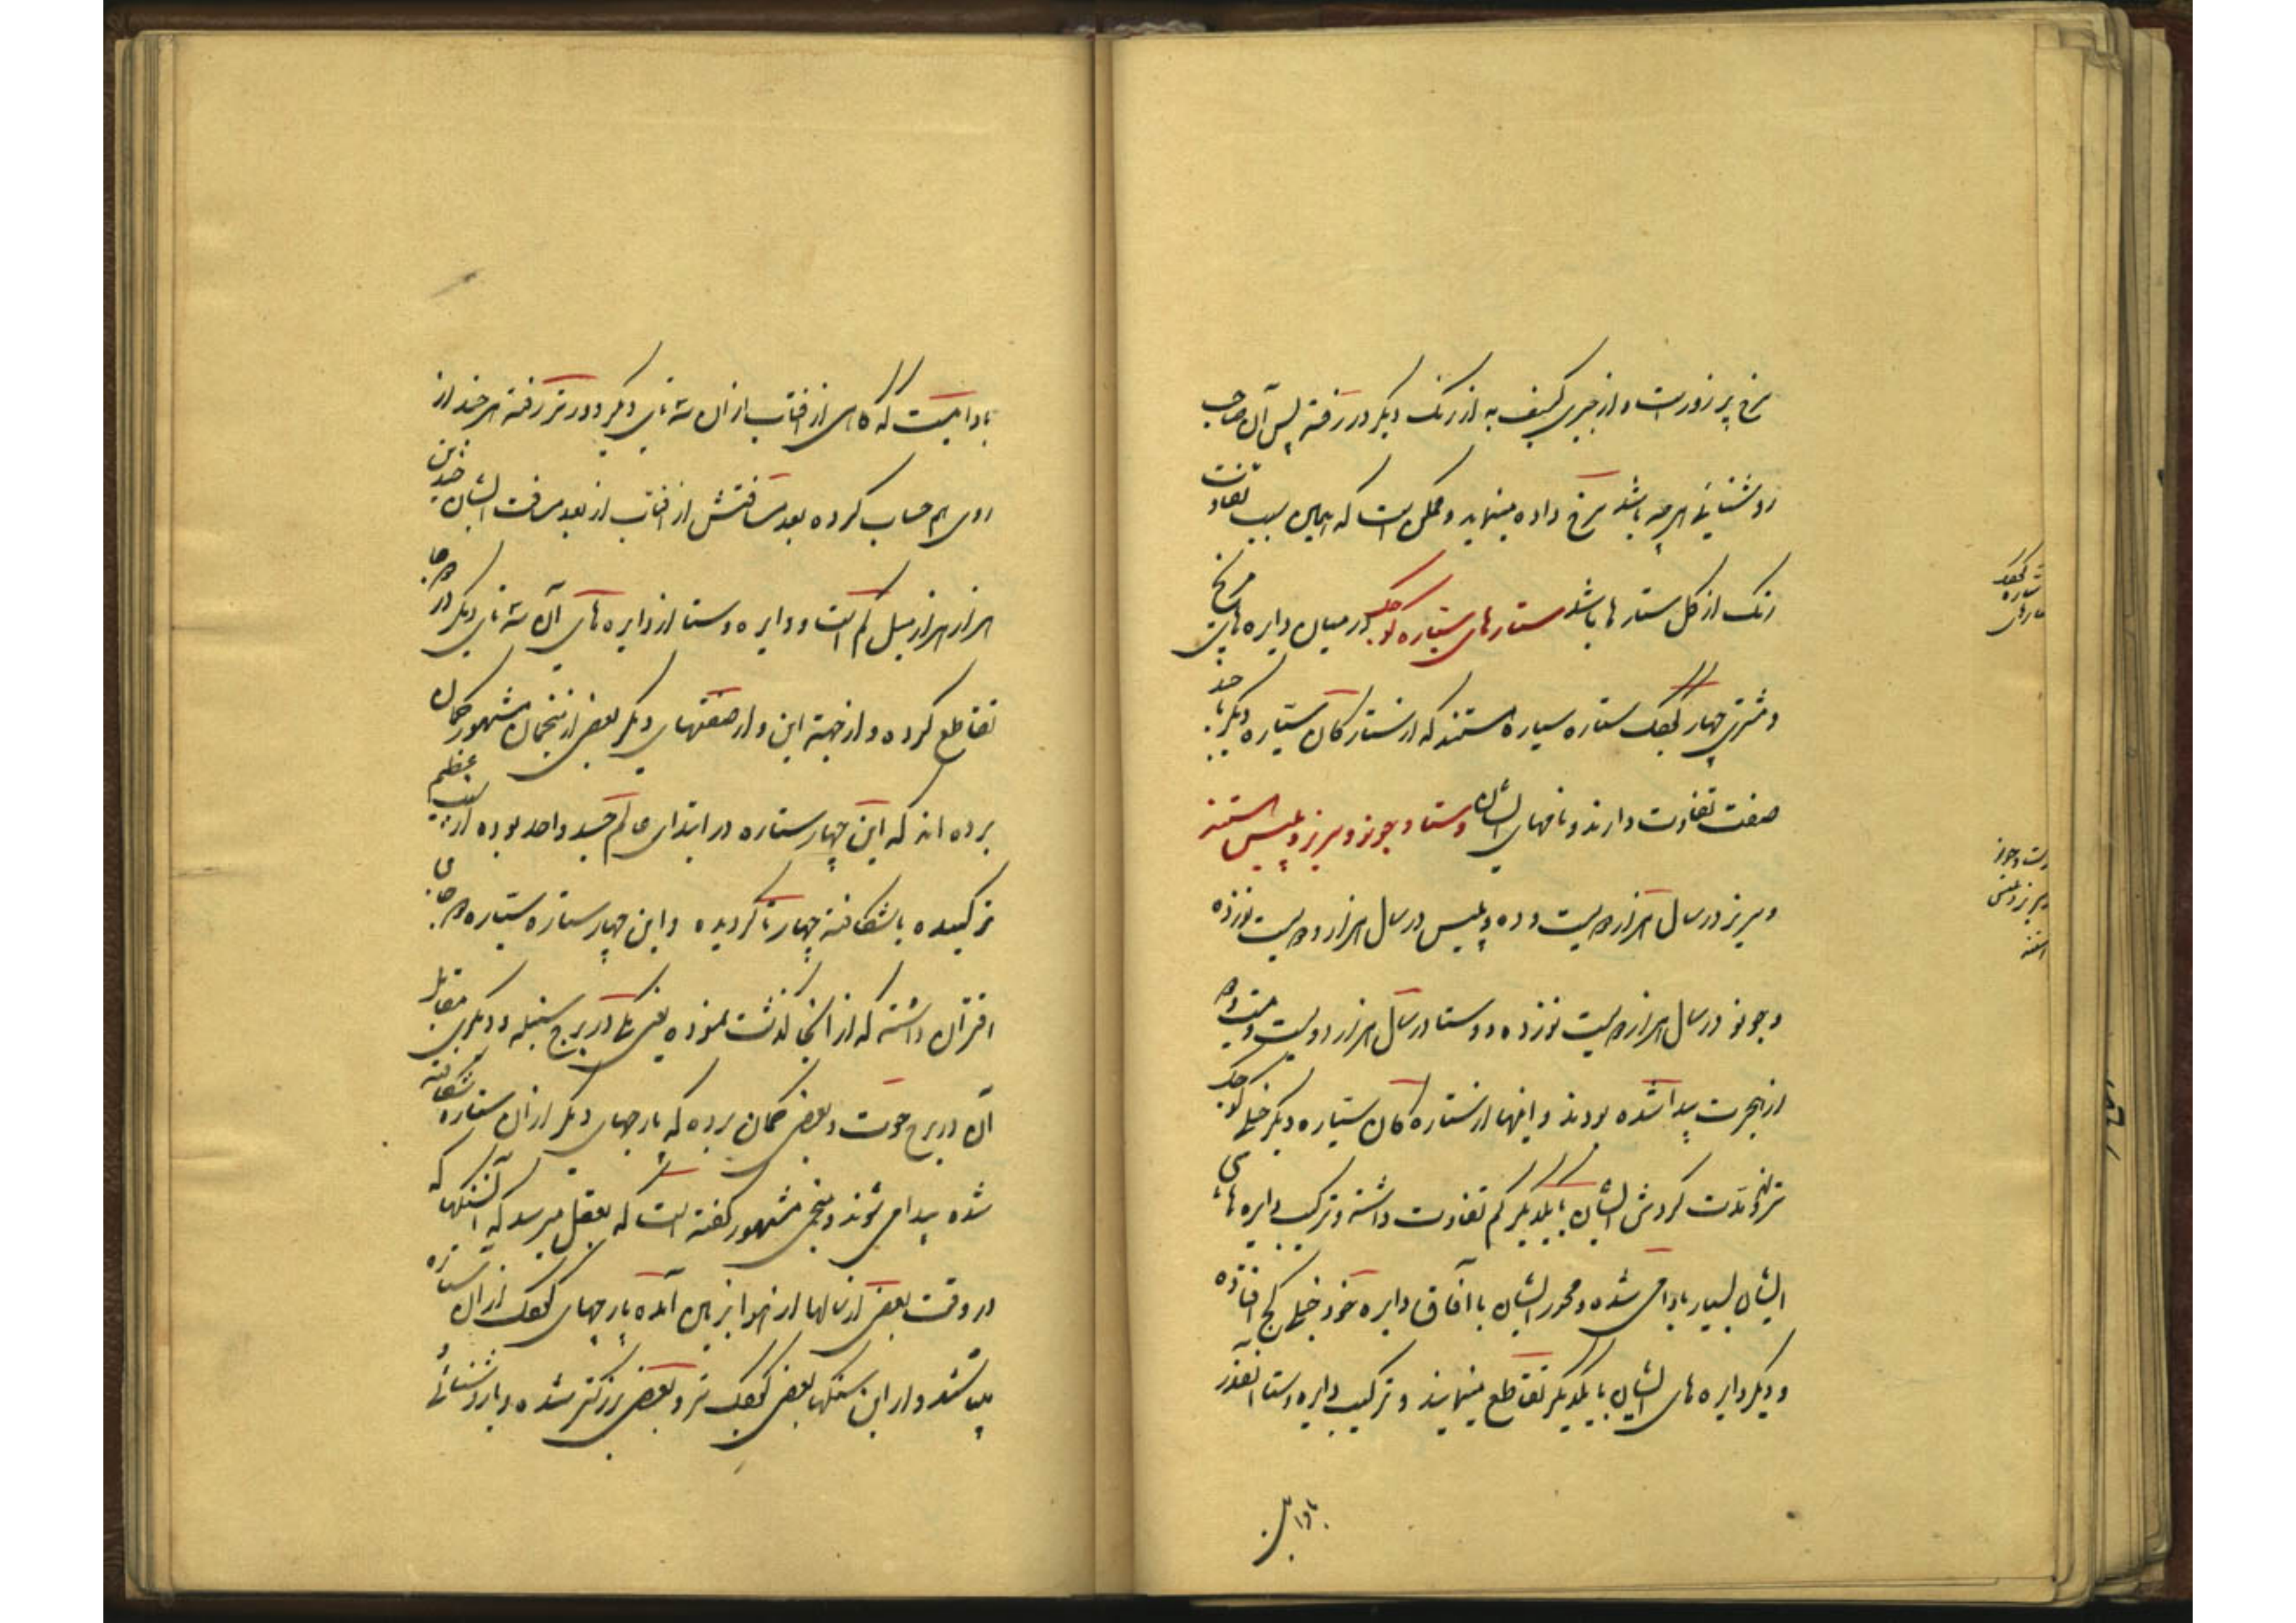 سرخ پر زور است و از چیزی کثیف به از رنگ دیگر در رفته پس آن صاحب
روشنائی هر چه باشد سرخ داده مینماید و ممکن است که همین سبب تفاوت
رنگ از کل ستارها باشد ستارهای ستاره کوچک در میان دایره های مریخ
و مشتری چهار کوچک ستاره سیاره هستند که از ستارکان سیاره دیگر با چند
صفت تفاوت دارند و نامهای ایشان وستا و جونو و سریز و پلیس هستند
و سریز در سال هزار دویست و ده و پلیس در سال هزار و دویست نوزده
و جونو در سال هزار دویست نوزده و وستا در سال هزار دویست و
از هجرت پیدا شده بودند و اینها از ستاره کان سیاره دیگر خیلی کوچک
تراند و مدت کردش ایشان با یکدیگر کم تفاوت داشته و ترکیب دایره های
ایشان بسیار بادامی شده و محور ایشان با آفاق دایره خود خیلی کج افتاده
و دیگر دایره های ایشان با یکدیگر تقاطع مینمایند و ترکیب دایره وستا آنقدر
بادامی
بادامیست که کاهی از افتاب از آن سه تای دیگر دورتر رفته هر چند از
روی هم حساب کرده بعد مسافتش از افتاب از بعد مسافت ایشان چندین
هزار هزار میل کم است و دایره وستا از دایره های آن سه تای دیگر در دو جا
تقاطع کرده و از جهة این و از صفتهای دیگر بعضی از منجمان مشهور کمان
برده اند که این چهار ستاره در ابتدای عالم جسد واحد بوده از سبب عظیم
ترکیده یا شکافته چهار تا کردیده و این چهار ستاره سیاره دو جای
اقتران داشته که از آنجا کذشت نموده یعنی یکی در برج سنبله و دیگری مقابل
آن در برج حوت و بعضی کمان برده که پارچهای دیگر از آن ستاره شکافته
شده پیدا می شوند و منجمی مشهور کفته است که بعقل میرسد که آن سنکها که
در وقت بعضی از سالها از هوا بزمین آمده پارچهای کوچک از آن ستاره
میباشند و از این سنکها بعضی کوچک تر و بعضی بزرکتر شده و با روشنائی